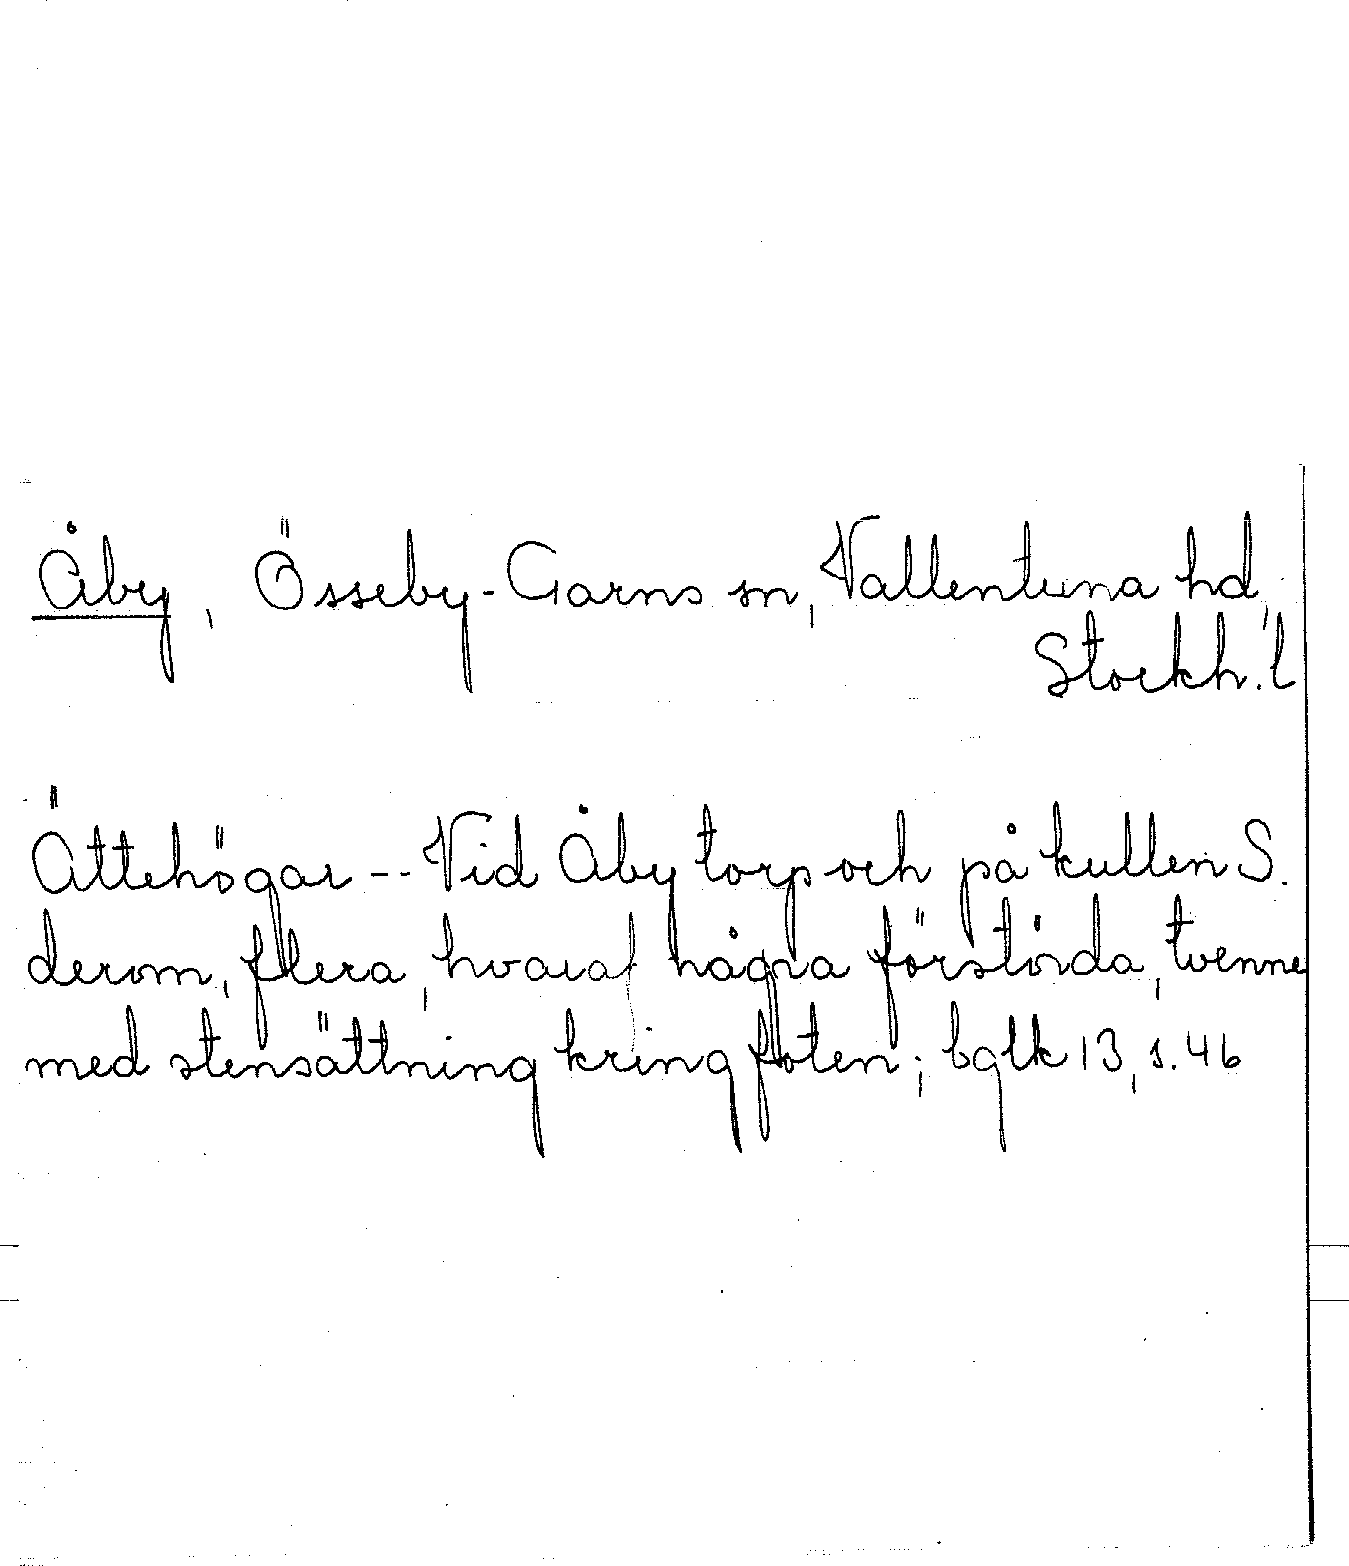 Åby, Össeby-Garns sn, Vallentuna hd,
Stockh. l
Ättehögar -- Vid Åby torp och på kullen S.
derom, flera, hvaraf några förstörda, tvenne
med stensättning kring foten; bglk 13, s. 46